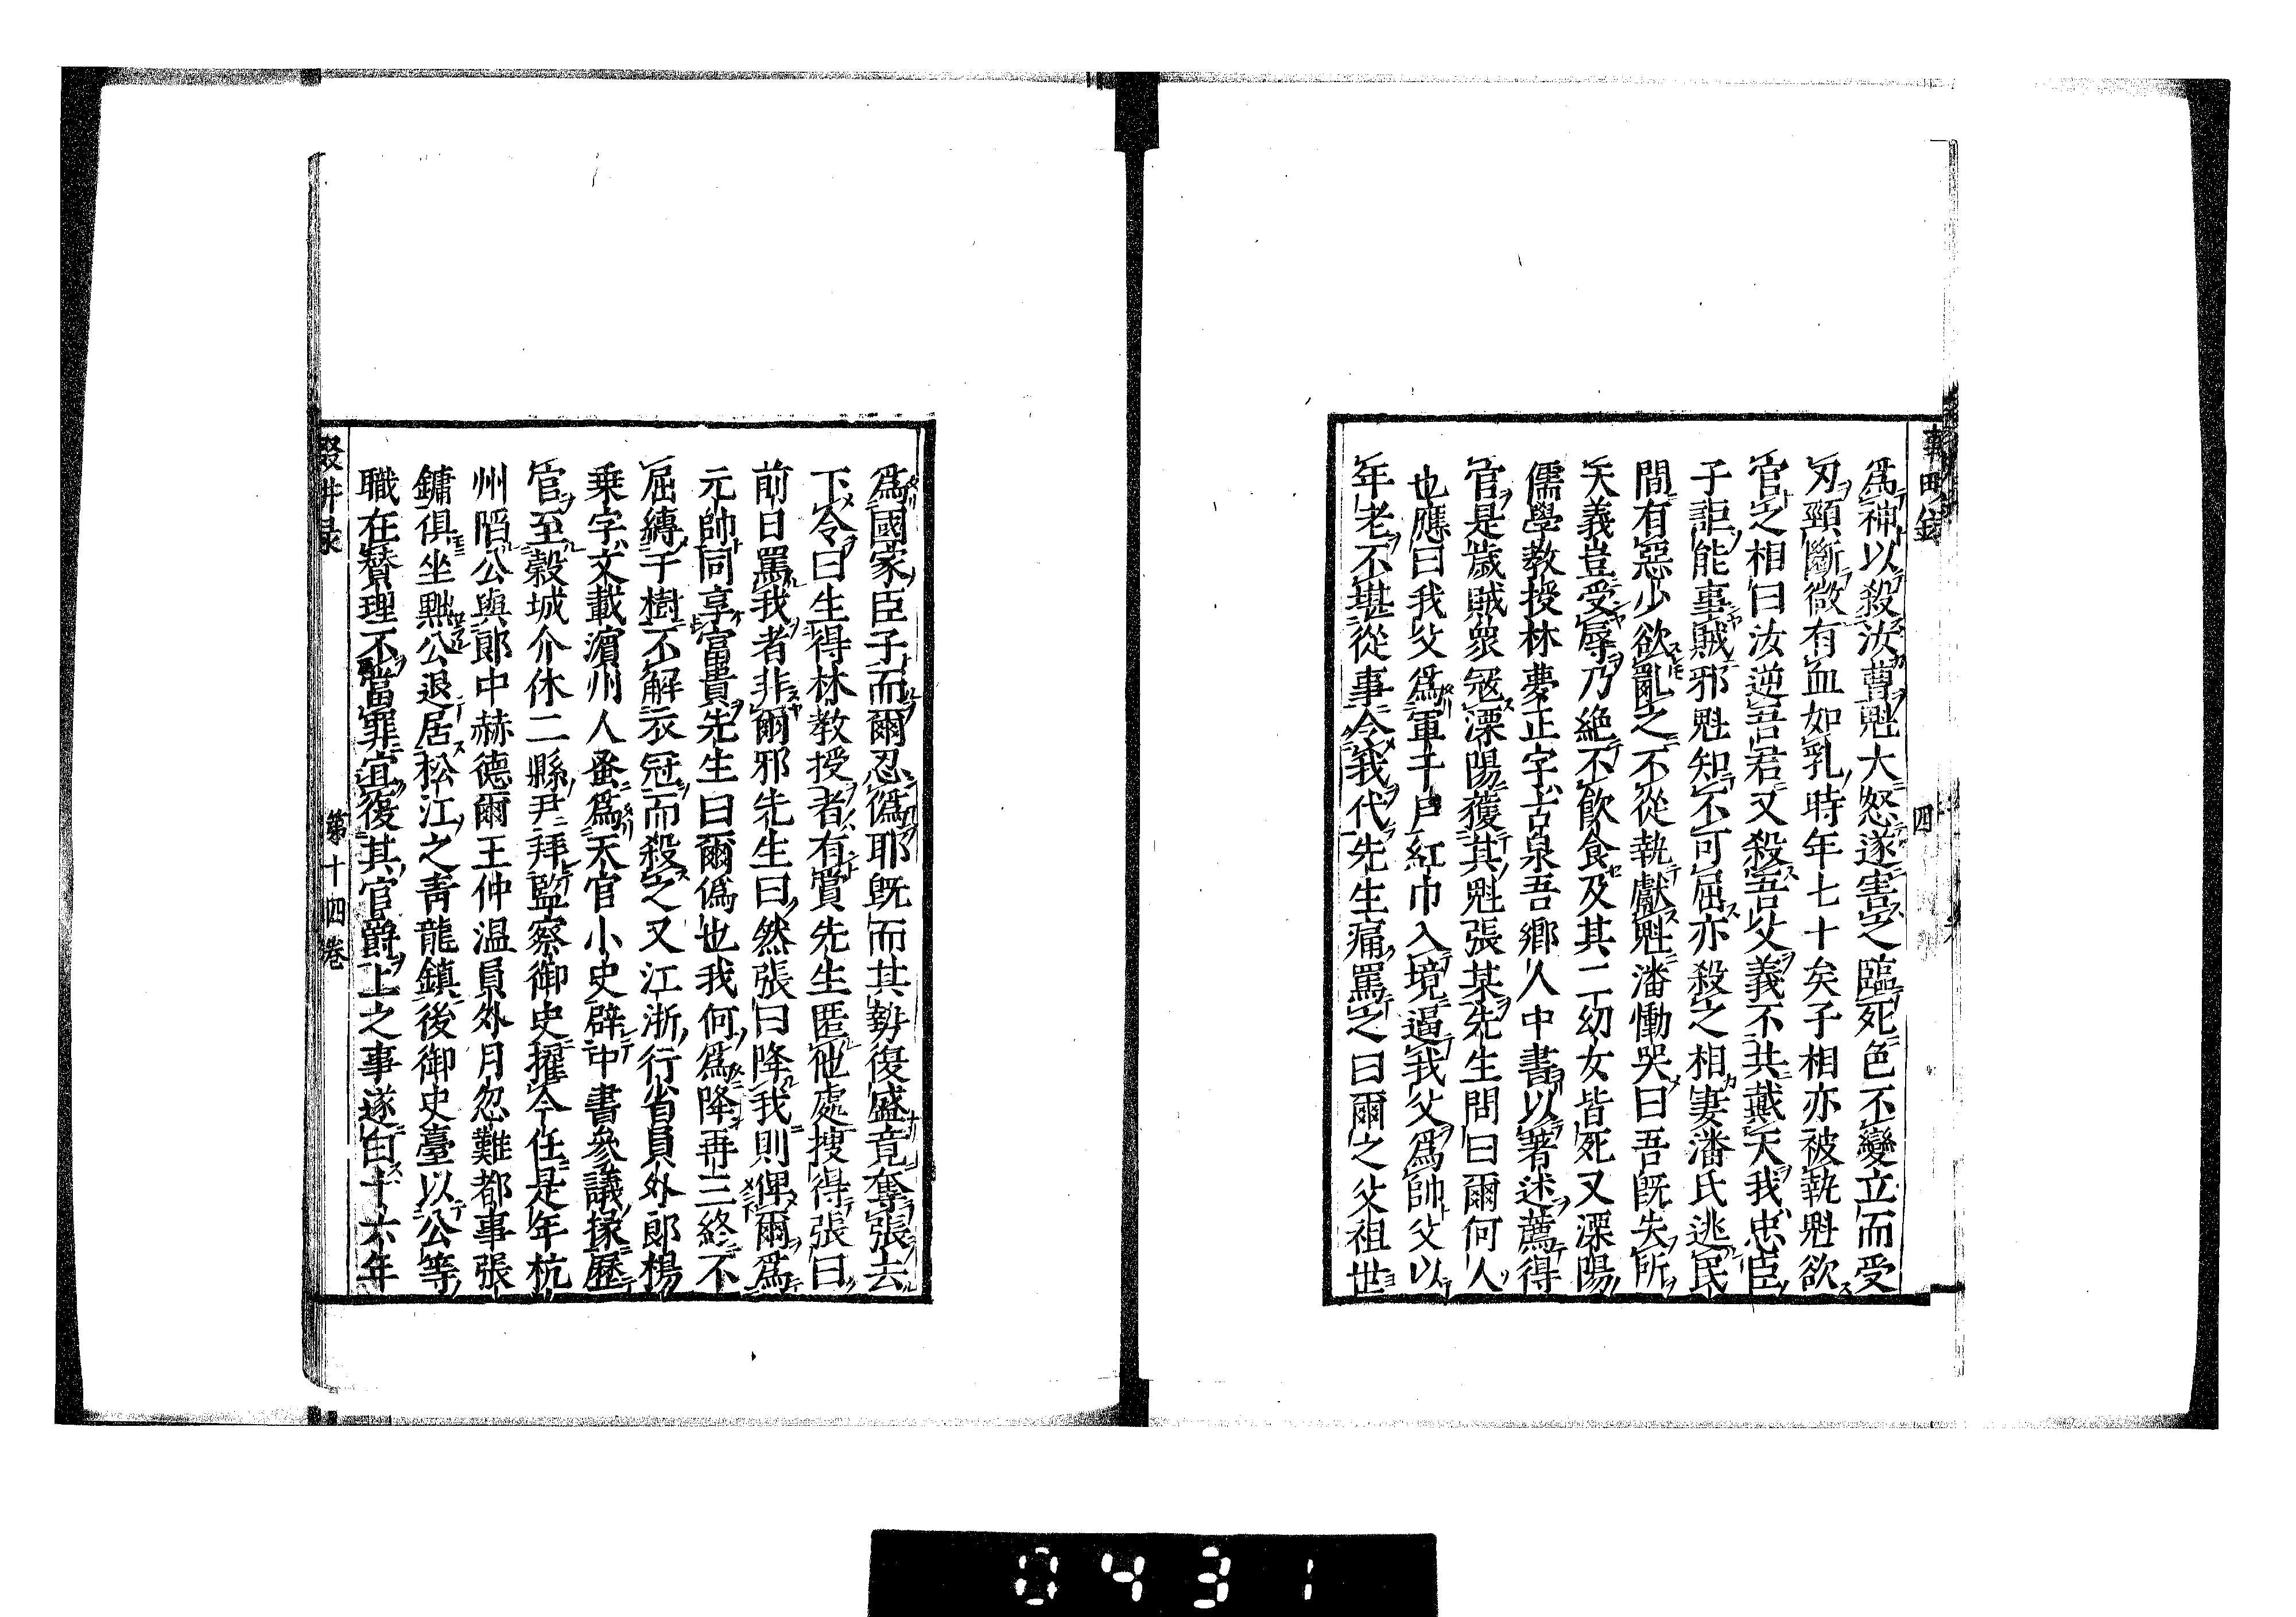 爲神以殺汝曹魁大怒遂害之臨死色不變立而受
刃頸斷微有血如乳時年七十矣子相亦被執魁欲
官之相曰汝逆吾君又殺吾父義不共戴天我忠臣
子詎能事賊邪魁知不可屈亦殺之相妻潘氏逃民
間有惡少欲亂之不從執獻魁潘慟哭曰吾旣失所
天義豈受辱乃絶不飲食及其二幼女皆死又溧陽
儒學教授林夢正字古泉吾鄉人中書以著述薦得
官是歲賊衆冦溧陽獲其魁張某先生問曰爾何人
也應曰我父爲軍千戶紅巾入境逼我父爲帥父以
年老不堪從事令我代先生痛罵之曰爾之父祖世
爲國家臣子而爾忍僞耶旣而其勢復盛竟奪張去
下令曰生得林教授者有賞先生匿他處搜得張曰
前日罵我者非爾邪先生曰然張曰降我則俾爾爲
元帥同享富貴先生曰爾僞也我何爲降再三終不
屈縛于樹不解衣冠而殺之又江浙行省員外郎楊
乗字文載濵州人蚤爲天官小史辟中書參議掾歷
官至榖城介休二縣尹拜監察御史擢今任是年杭
州䧟公與郎中赫德爾王仲温員外月忽難都事張
鏞俱坐黜公退居松江之青龍鎮後御史臺以公等
職在贊理不當罪宜復其官爵上之事遂白十六年
輟耕録
第十四卷
四